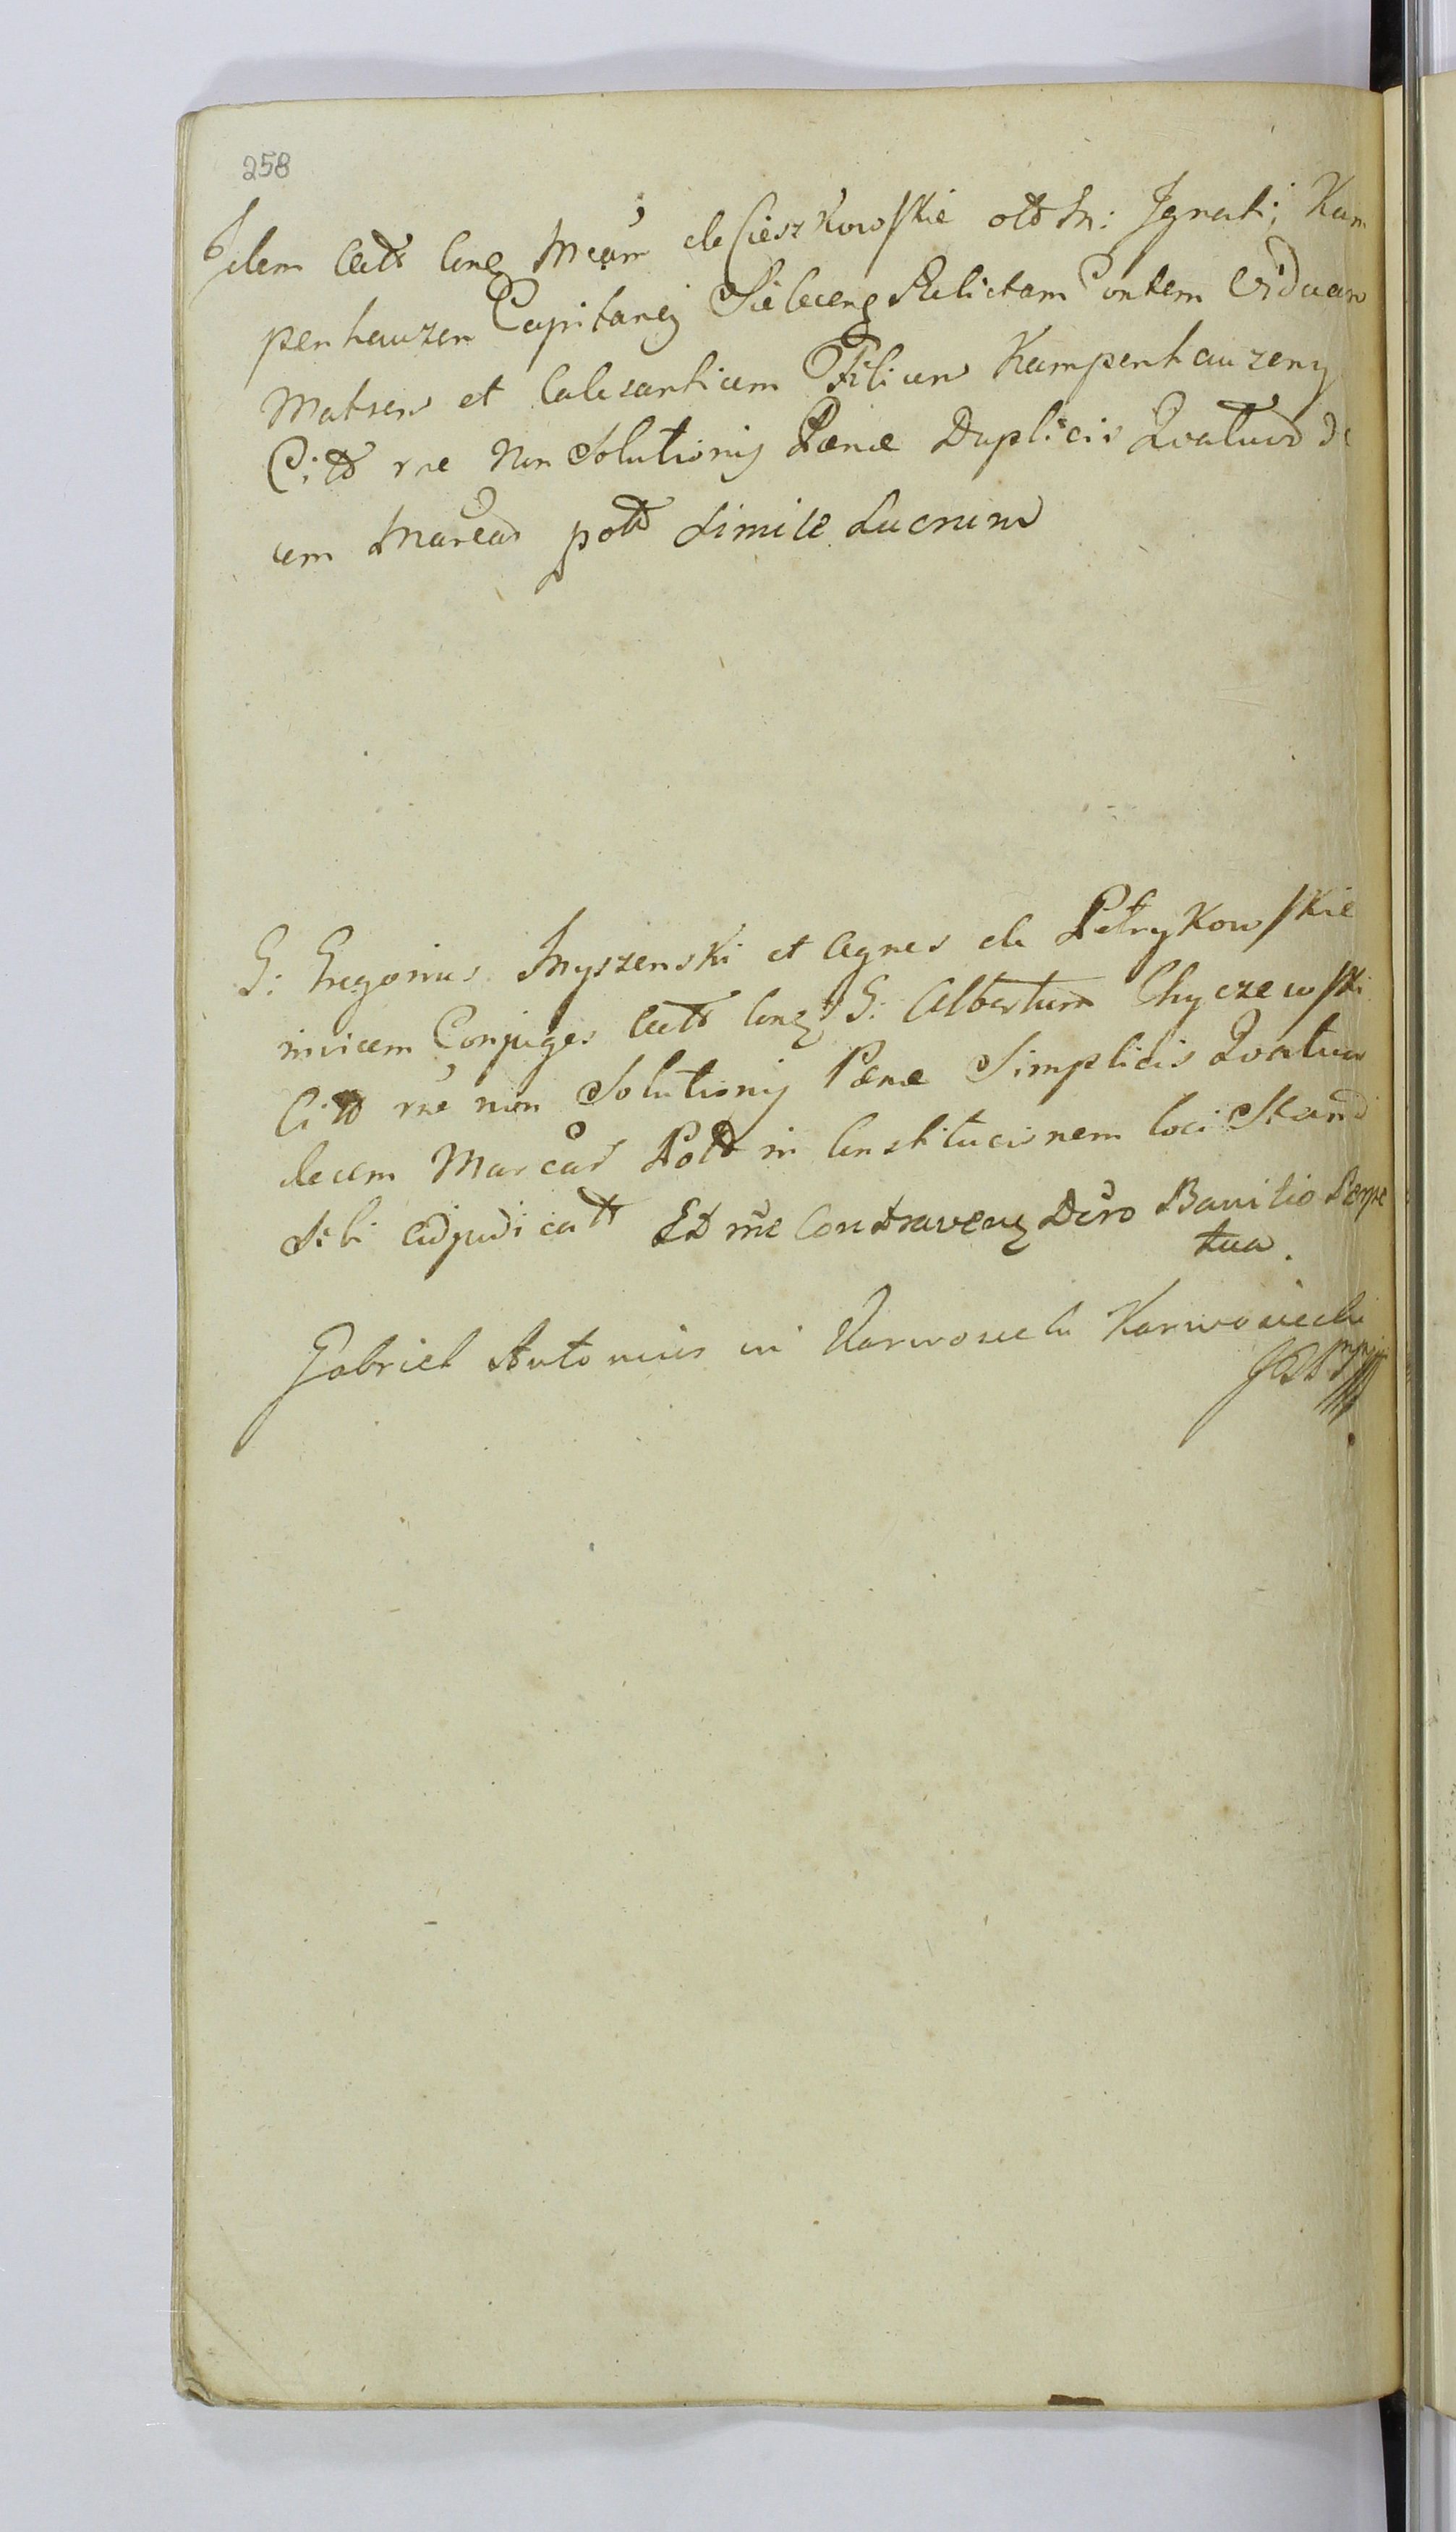 258
Idem Actt Cong Mcam de Cieszkowskie olt M: Ignatij Kam
penhauzen Capitanej Sieleceng Relictam Contem Viduam
Matrem et Calesantium Filium Kampenhauzeny
Citt rne Non Solutionis Penæ Duplicis Quatuord de
cem Marcas ptt simile Lucrum
G: Gregorius Myszenski et Agnes de Petrykowskie
invicem Conjuges Actt Cong G: Albertum Chyczewski
Citt rne non Solutionis Penæ Simplicis Quatuor
decem Marcas Ptt in Constitucionem loci Standi
Sibi adjudicatt Et rne Contraveng Decro Banitio Perpe
tua.
Gabriel Antonius in Karwosieck Karwosiecki
mp